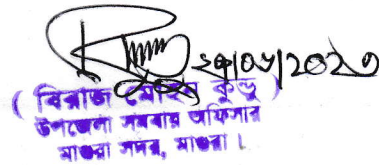 ২৫/০৬/২০২৩
( বিরাজ মোহন কুন্ডু )
উপজেলা সমবায় অফিসার
মাগুরা সদর, মাগুরা।